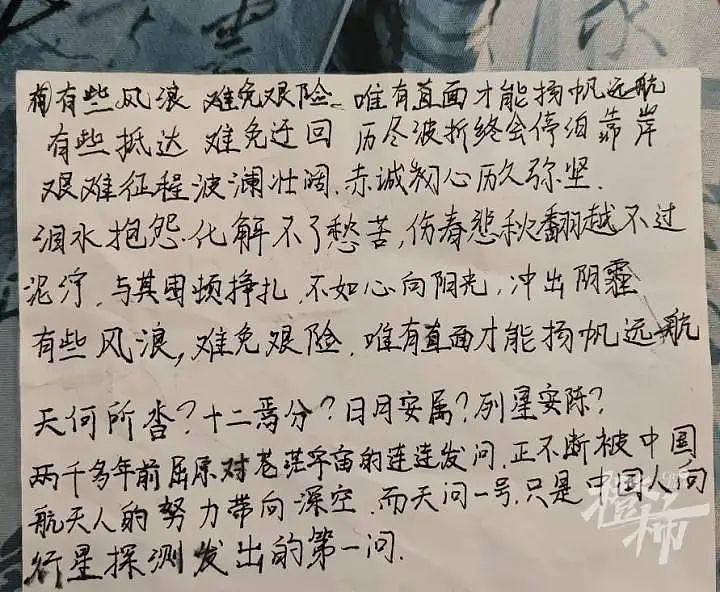 有有些风浪 难免艰险、唯有直面才能扬帆远航
有些抵达 难免迂回 历尽波折终会停泊靠岸
艰难征程波澜壮阔.赤诚初心历久弥坚.
泪水抱怨.化解不了愁苦,伤春悲秋翻越不过
泥泞.与其困顿挣扎.不如心向阳光,冲出阴霾
有些风浪,难免艰险.唯有直面才能扬帆远航
天何所沓?十二焉分?日月安属?列星安陈?
两千多年前屈原对苍茫宇宙的连连发问.正不断被中国
航天人的努力带向深空.而天问一号.只是中国人向
行星探测发出的第一问.
橙柿